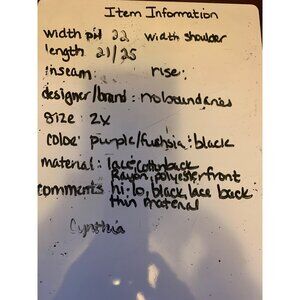 Item Information
width pit 22 width shoulder
length 21/25
inseam: rise:
designer/brand: noboundaries
size: 2x
color purple/fushia: black
material: lace, cotton back
Rayon, polyester front
comments hi:lo, black lace back
thin material
Cynthia